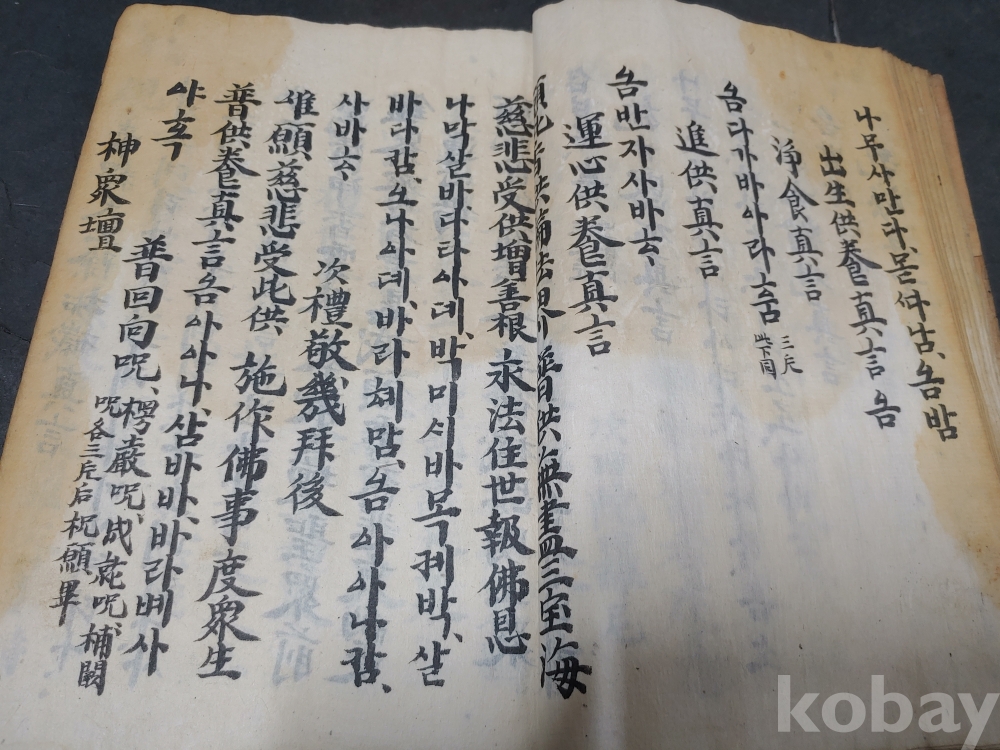 나무사만다, 못다남, 옴밤
出生供養真言 옴
淨食真言
옴다가바아라훔 三斤 此下同
進供真言
옴반자사바하、
運心供養真言
願此香供徧法界 普供無盡三宝海
慈悲受供增善根 永法住世報佛恩
나막살바、다타아뎨、박미시바목계박、살
바다캄、오나아뎨、바라혜맘、옴아아나캄、
사바하、 次禮敬幾拜後
唯願慈悲受此供 施作佛事度衆生
普供養真言옴아아나、삼바바、바라뼤사
야훅 普回向呪、楞嚴呪、成就呪、補闕
神衆壇 呪各三斤后祝願畢
kobay